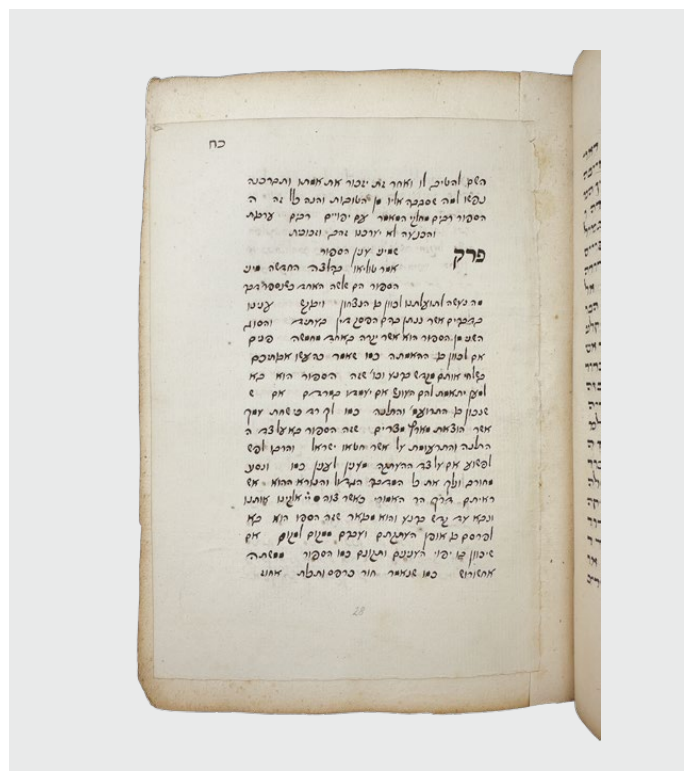 כח
השם להטיב לו ואחר זה יזכור את אמתו ותברכנה
נפשו למה שסבבה אליו מן הטובות והנה כל זה ה
הספור רבים מחלקי המאמר עם יפויים רבים ערבות
והכנעה לא יערכנו זהב וזכוכית
פרק שמיני ענין הספור
אמר טוליאו בהלצה החדשה מיני
הספור הם שלשה האחד כשנספר בם
מה נעשה לתועלתנו לכוון בו הנצחון ויפגש ענינו
בדברים אשר ננתן בהם הפסק דין והסוג
השני מן הספור הוא אשר יקרה באחד מחמשה פנים
אם לכוון בו ההאמתה כמו שאמר כה עשו אבותיכם
בשלחי אותם מקדש ברנע וכו' שזה הספור הוא בא
למען יתאמת להם העונש אם יעמדו במרדם אם ש
שנכון בו התרועם והתלנה כמו לך רד כי שחת עמך
אשר הוצאת מארץ מצרים שזה הספור בא על צד ה
התלנה והתרעומת על אשר חטאו ישראל והרבו לפש
לפשוע אם על צד ההעתקה מענין לענין כמו ונסע
מחורב ונלך את כל המדבר הגדול והנורא ההוא אש
ראיתם דרך הר האמורי כאשר צוה יי אלקינו אותנו
ונבא עד קדש ברנע והוא מבואר שזה הספו הוא בא
לפרסם בו אופן העתקתם ועברם ממקום למקום אם
שיכוון בו יפוי הענינים ותקונם כמו הספור ממשתה
אחשורוש כמו שנאמר חור כרפס ותכלת אחוז
28